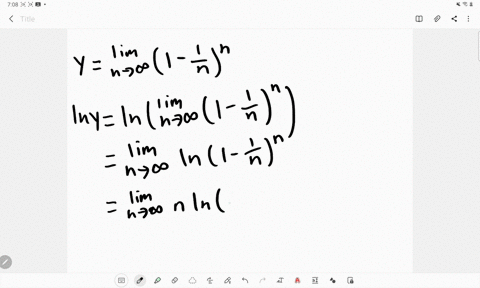 7:08
Title
y = lim n→∞ (1 - 1/n)^n
ln y = ln( lim n→∞ (1 - 1/n)^n )
= lim n→∞ ln (1 - 1/n)^n
= lim n→∞ n ln(